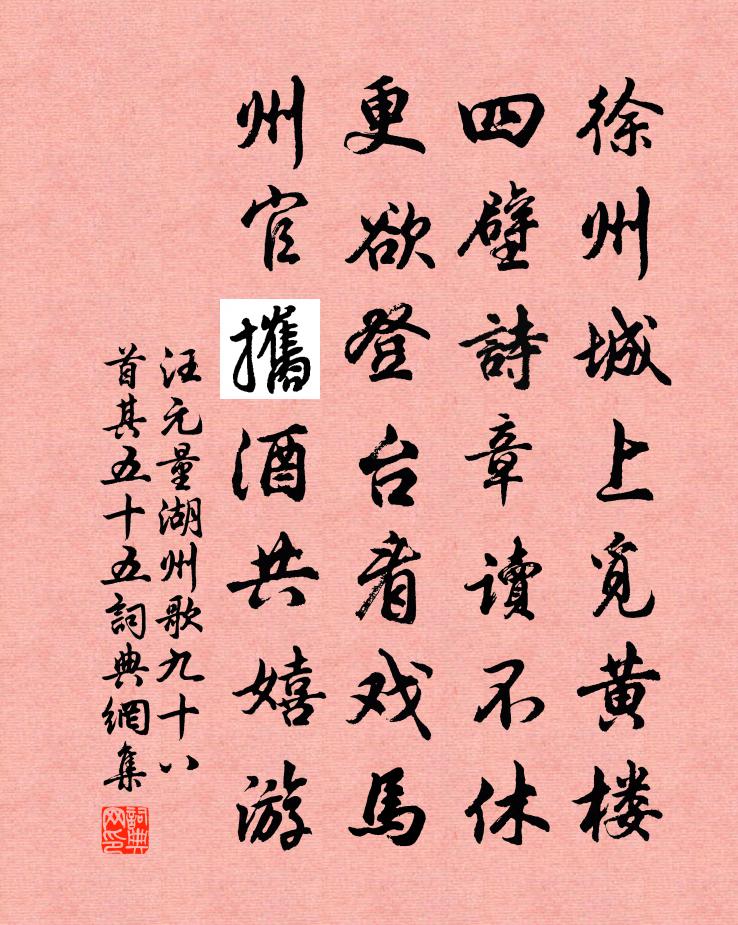 徐州城上觅黄楼
四壁詩章讀不休
更欲登台看戏馬
州官攜酒共嬉游
汪元量湖州歌九十八
首其五十五詞典網集
詞典网印